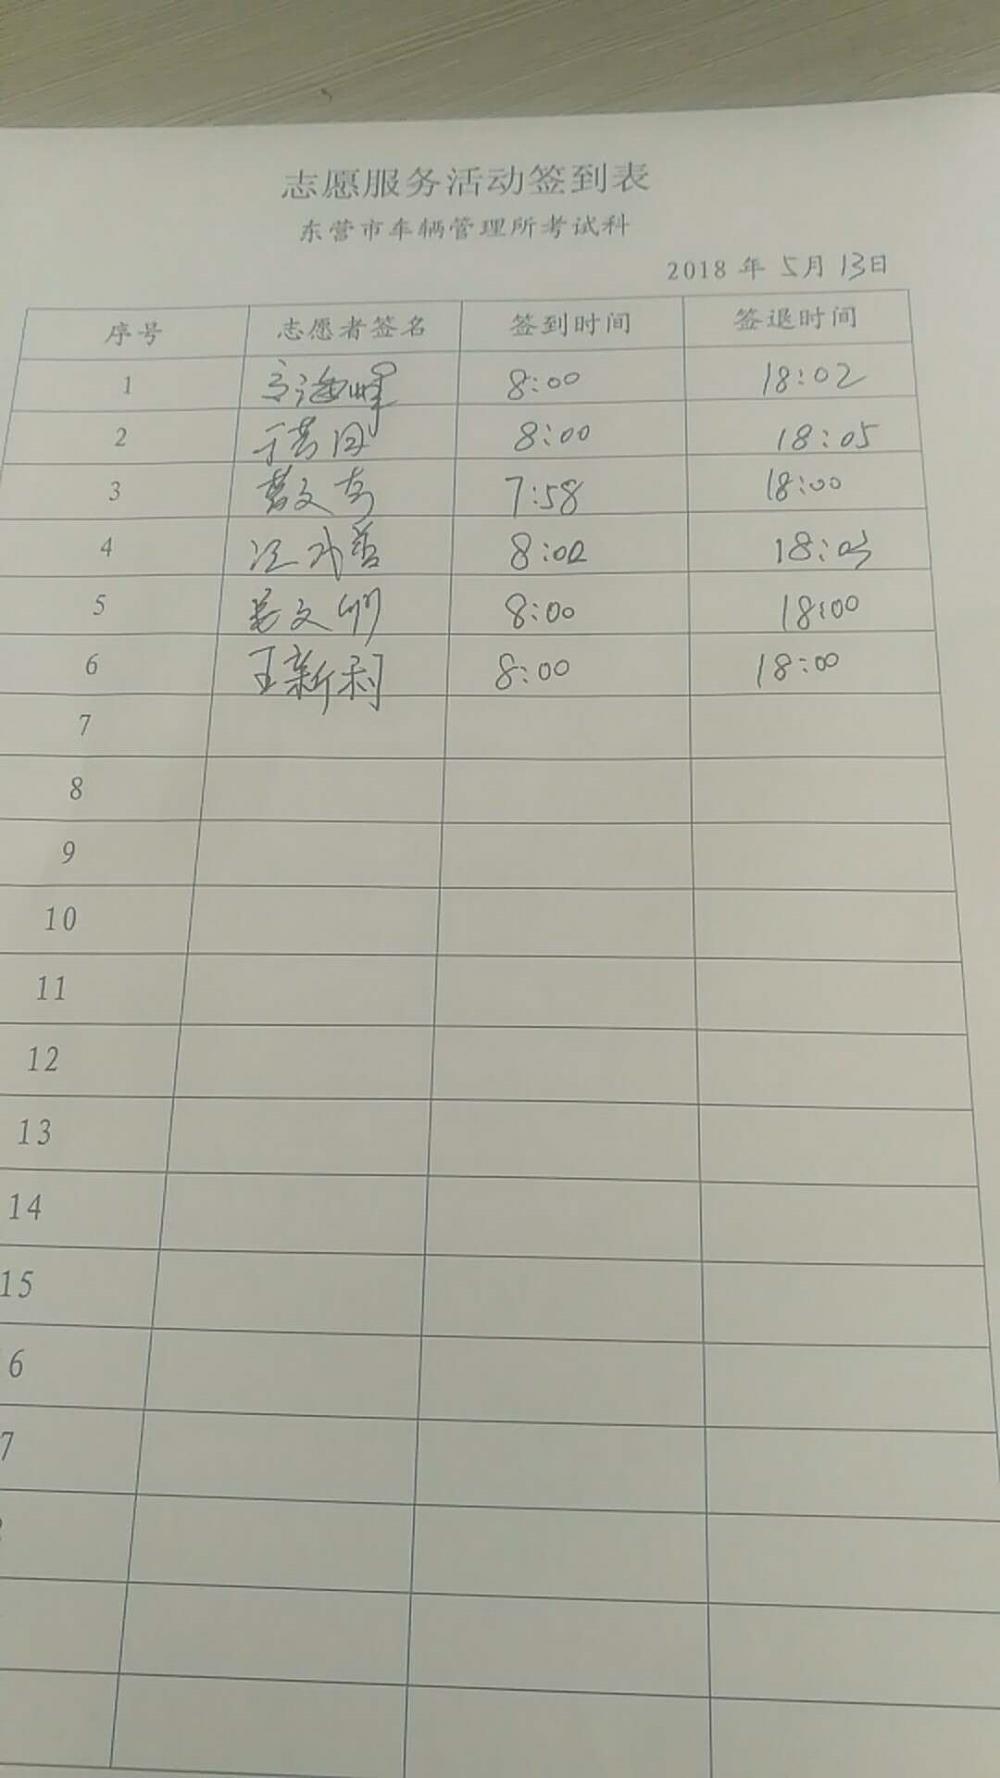 志愿服务活动签到表
东营市车辆管理所考试科
2018 年 5月 13日
序号 志愿者签名 签到时间 签退时间
1 8:00 18:02
2 8:00 18:05
3 7:58 18:00
4 8:02 18:03
5 8:00 18:00
6 王新利 8:00 18:00
7
8
9
10
11
12
13
14
15
6
7